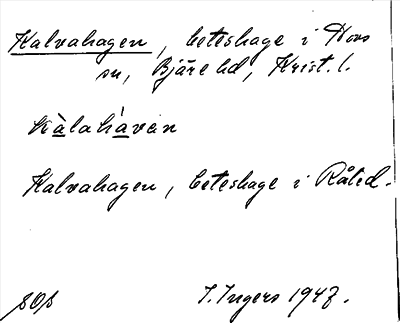 Kalvahagen, beteshage i Hovs
sn, Bjäre hd, Krist. l.
kàlahávan
Kalvahagen, beteshage i Råled.
I. Ingers 1947.